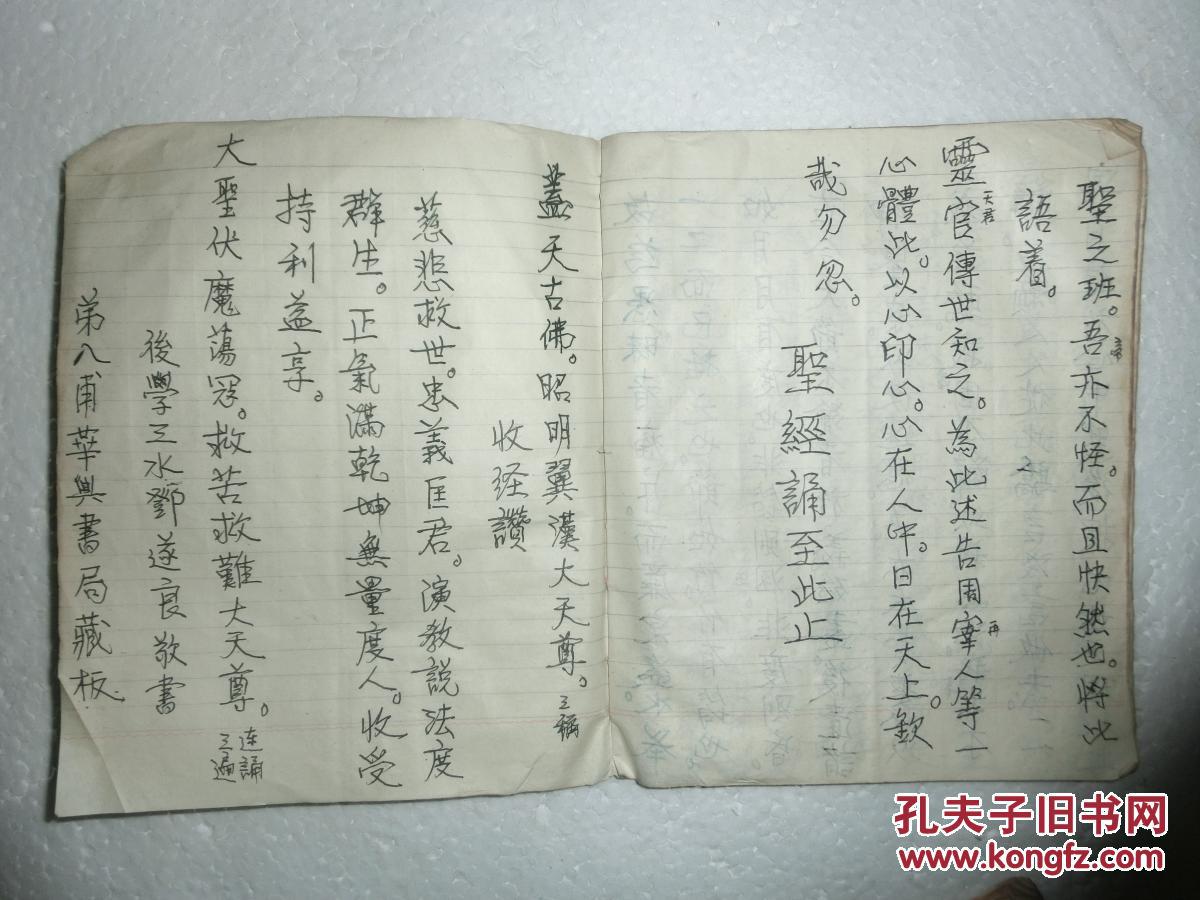 聖之班。吾亦不怪。而且快然也。將此
語着。
靈官天君傳世知之。為此述告周宰再人等一
心體此。以心印心。心在人中。日在天上。欽
哉勿忽。
聖經誦至此止
蓋天古佛。昭明翼漢大天尊。三稱
收经讚
慈悲救世。忠義匡君。演教説法度
群生。正氣滿乾坤無量度人。收受
持利益享。
大聖伏魔蕩寇。救苦救難大天尊。连誦三遍
後學三水鄧遂良敬書
弟八甫華興書局藏板.
孔夫子旧书网
www.kongfz.com